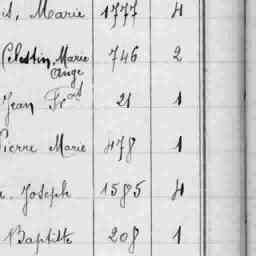 Marie 1777 4
Célestin, Marie 746 2
Ange
Jean Fçois 21 1
Pierre Marie 478 1
Joseph 1585 4
Baptiste 208 1